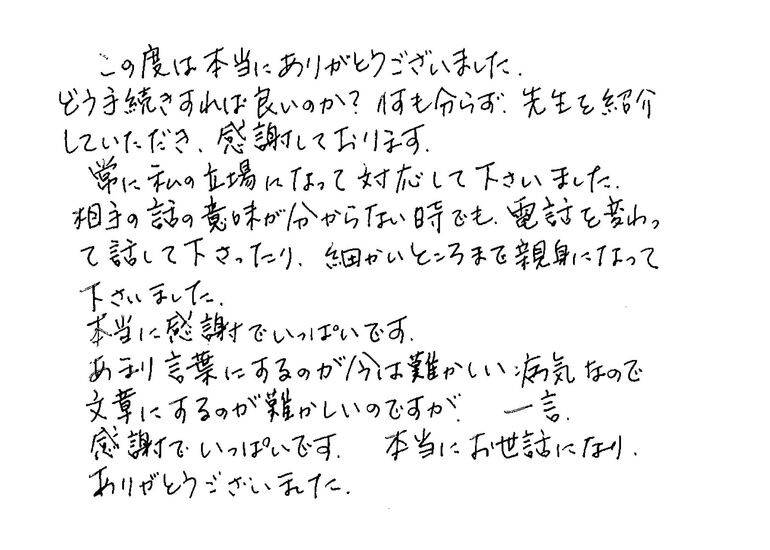 この度は本当にありがとうございました.
どう手続きすれば良いのか? 何も分らず、先生を紹介
していただき、感謝しております.
常に私の立場になって対応して下さいました.
相手の話の意味が分からない時でも、電話を変わっ
て話して下さったり、細かいところまで親身になって
下さいました.
本当に感謝でいっぱいです.
あまり言葉にするのが今は難かしい病気なので
文章にするのが難かしいのですが、 一言.
感謝でいっぱいです. 本当にお世話になり、
ありがとうございました.